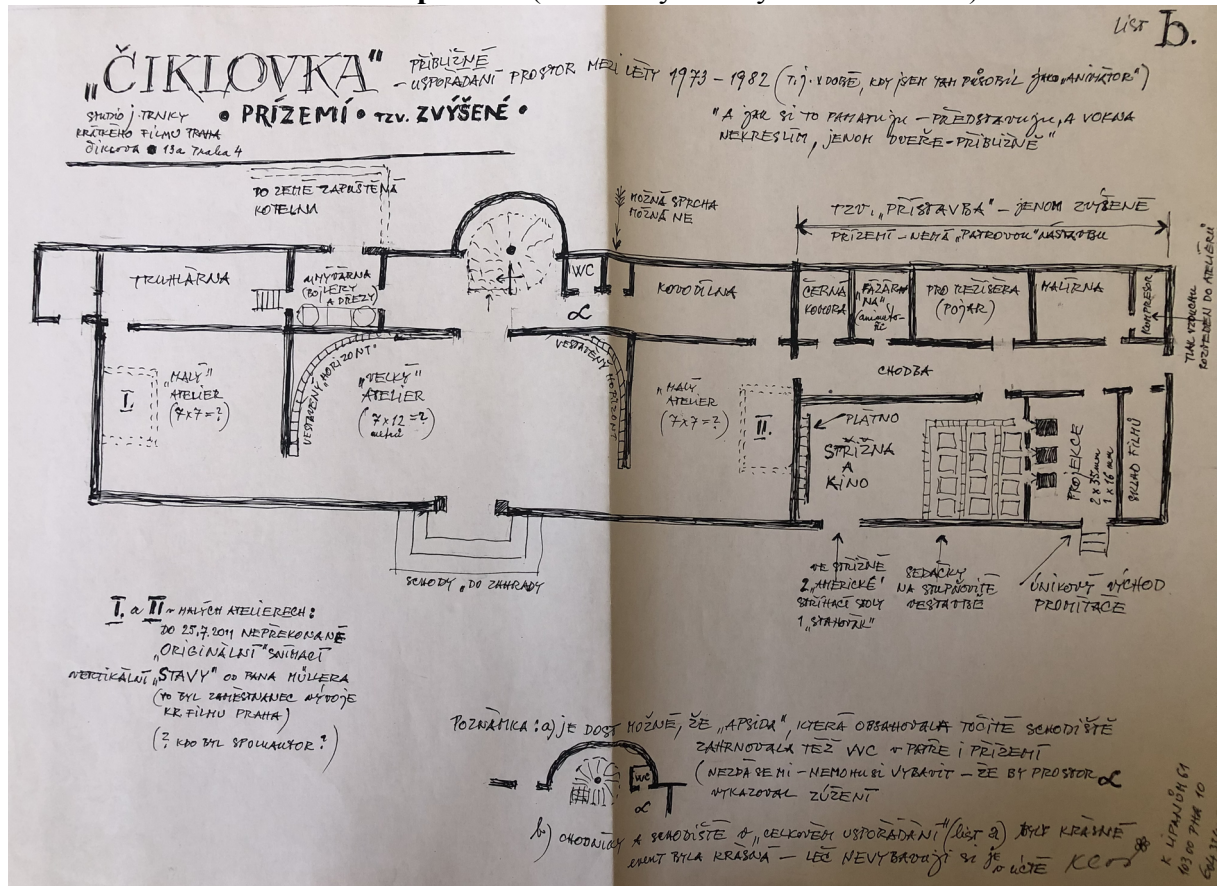 LIST b.
„ČIKLOVKA"
PŘIBLIŽNÉ
– USPOŘÁDÁNÍ PROSTOR MEZI LÉTY 1973 – 1982 (T.J. V DOBĚ, KDY JSEM TAM PŮSOBIL JAKO „ANIMÁTOR")
STUDIO J. TRNKY
KRÁTKÉHO FILMU PRAHA
ČIKLOVA 13a Praha 4
• PŘÍZEMÍ • TZV. ZVÝŠENÉ •
"A JAK SI TO PAMATUJU – PŘEDSTAVUJU, A VOKNA
NEKRESLÍM, JENOM DVEŘE – PŘIBLIŽNĚ"
DO ZEMĚ ZAPUŠTĚNÁ
KOTELNA
MOŽNÁ SPRCHA
MOŽNÁ NE
TZV. „PŘÍSTAVBA" – JENOM ZVÝŠENÉ
PŘÍZEMÍ – NEMÁ „PATROVOU" NÁSTAVBU
TRUHLÁRNA
UMÝVÁRNA
(BOJLERY
A DŘEZY)
WC
α
KOVODÍLNA
ČERNÁ
KOMORA
„FÁZÁR
NA"
PRO REŽISÉRA
(POJAR)
MALÍRNA
KOMPRESOR
TLAK VZDUCHU
ROZVEDEN DO ATELIÉRŮ
CHODBA
I.
„MALÝ"
ATELIER
(7x7=?)
VESTAVĚNÝ „HORIZONT"
„VELKÝ"
ATELIER
(7x12=?)
metrů
VESTAVĚNÝ HORIZONT
„MALÝ
ATELIER
(7x7=?)
II.
PLÁTNO
STŘIŽNA
A
KINO
PROJEKCE
2 x 35 mm
1 x 16 mm
SKLAD FILMŮ
SCHODY „DO ZAHRADY
VE STŘIŽNĚ
2 „AMERICKÉ"
STŘIHACÍ STOLY
1
SEDAČKY
NA STUPŇOVITÉ
VESTAVBĚ
ÚNIKOVÝ VÝCHOD
PROMÍTAČE
I. a II v MALÝCH ATELIERECH:
DO 25.7.2011 NEPŘEKONANÉ
„ORIGINÁLNÍ" SNÍMACÍ
VERTIKÁLNÍ „STAVY" OD PANA MÜLLERA
(TO BYL ZAMĚSTNANEC VÝVOJE
KR. FILMU PRAHA)
(? KDO BYL SPOLUAUTOR?)
POZNÁMKA: a) JE DOST MOŽNÉ, ŽE „APSIDA", KTERÁ OBSAHOVALA TOČITÉ SCHODIŠTĚ
ZAHRNOVALA TÉŽ WC V PATŘE I PŘÍZEMÍ
(NEZDÁ SE MI – NEMOHU SI VYBAVIT – ŽE BY PROSTOR α
VYKAZOVAL ZÚŽENÍ
WC
α
b) CHODNÍČKY A SCHODIŠTĚ V „CELKOVÉM USPOŘÁDÁNÍ" (LIST a) BYLY KRÁSNÉ
EVENT BYLA KRÁSNÁ – LEČ NEVYBAVUJI SI JE
K LIPANŮM 61